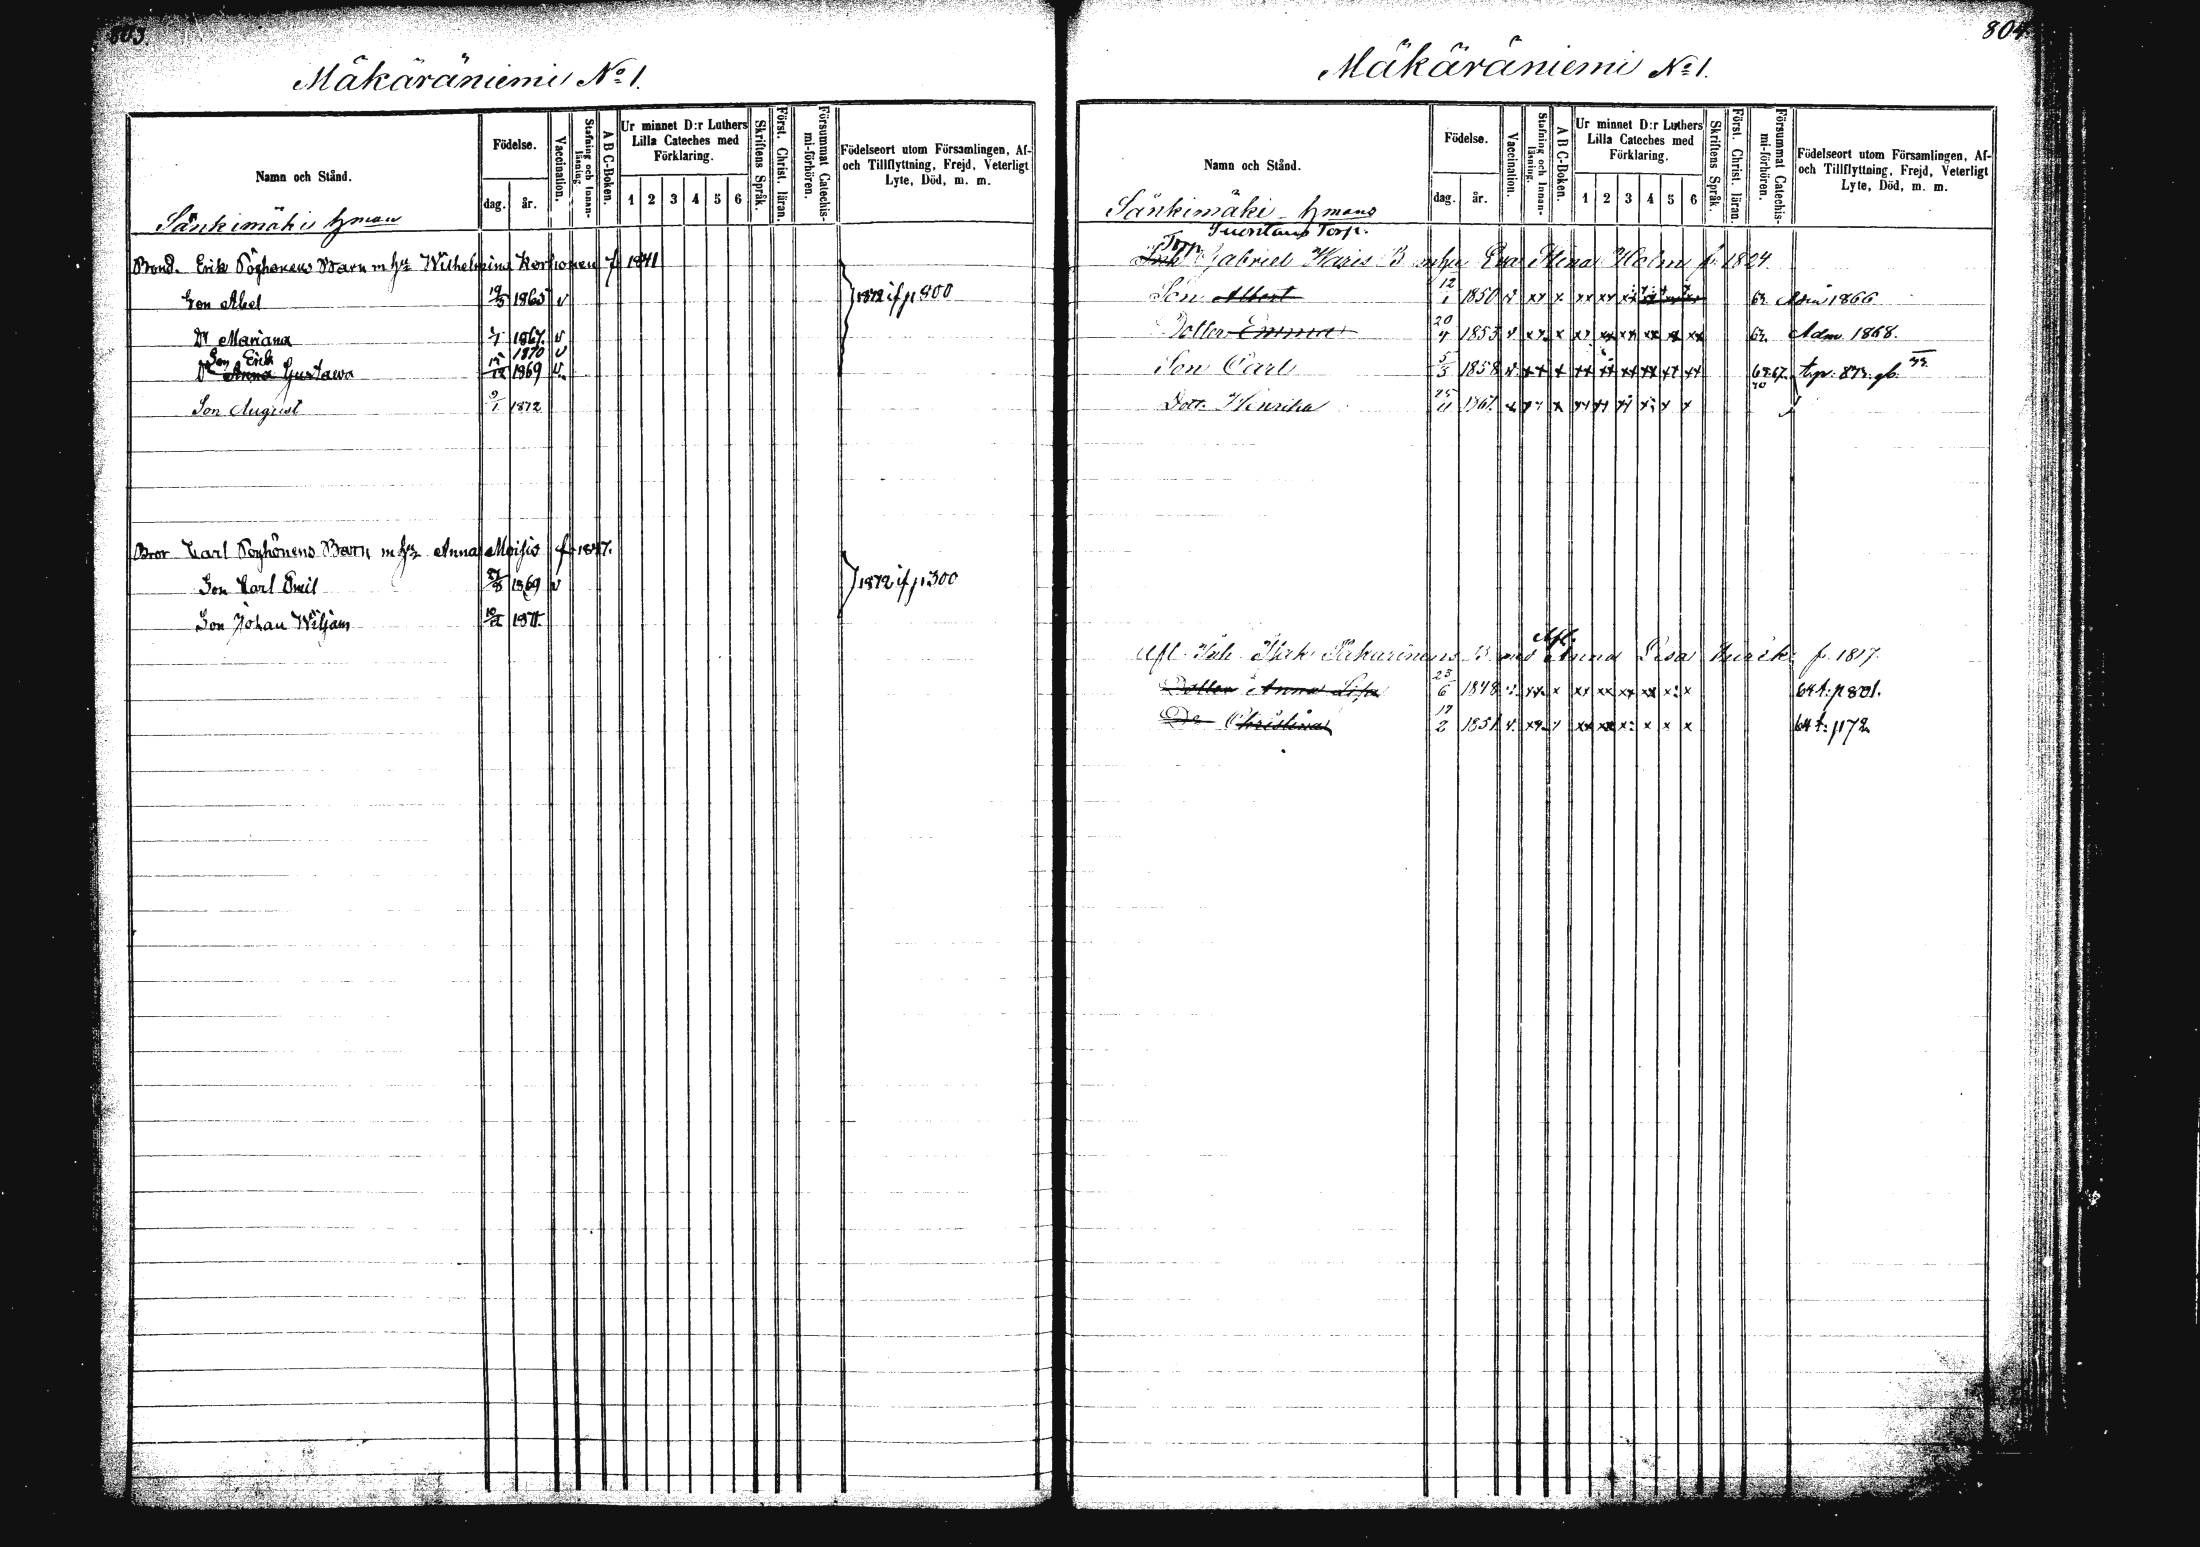 803.
Mäkäräniemi No 1.
Namn och Stånd.
Födelse.
dag. år.
Vaccination.
Stafning och Innan-läsning.
A B C-Boken.
Ur minnet D:r Luthers Lilla Cateches med Förklaring.
1 2 3 4 5 6
Skriftens Språk.
Först. Christ. läran.
Försummat Catechis-mi-förhören.
Födelseort utom Församlingen, Af- och Tillflyttning, Frejd, Veterligt Lyte, Död, m. m.
Sänkimäki hman
Bond. Erik Pöyhönens Barn m hu Wilhelmina Korhonen f 1841
Son Abel 19/3 1865 v 1872 if p 800
Dr Mariana 1/1 1867 v
Son Erik 1870 v
Dr Anna Gustava 1869 v.
Son August 9/1 1872
Bror Carl Pöyhönens Barn m hu Anna Moisio f 1847.
Son Carl Emil 1869 v 1872 if p 300
Son Johan Wiljam 1871.
804
Mäkäräniemi No 1.
Namn och Stånd.
Födelse.
dag. år.
Vaccination.
Stafning och Innan-läsning.
A B C-Boken.
Ur minnet D:r Luthers Lilla Cateches med Förklaring.
1 2 3 4 5 6
Skriftens Språk.
Först. Christ. läran.
Försummat Catechis-mi-förhören.
Födelseort utom Församlingen, Af- och Tillflyttning, Frejd, Veterligt Lyte, Död, m. m.
Sänkimäki hmans
Torp.
Torp. Gabriel Haris B m hu Eva Stina Holm f. 1824.
Son Albert 12/1 1850 v xx x xx xx Adm 1866
Dotter Emma 20/4 1853 v. xx x xx xx xx xx xx xx Adm 1868.
Son Carl 5/3 1858 v. xx x xx xx xx xx xx xx
Dott. Henrika 25/11 1861 xx x xx xx x x
Afl.
Afl Inh B med Anna Lisa f. 1817.
Dotter Anna Lisa 23/6 1848 v. xx x xx xx xx xx x: x 64 t: p 801.
Dr Christina 17/2 1851 v. xx xx x: x x x 64 t: p 172